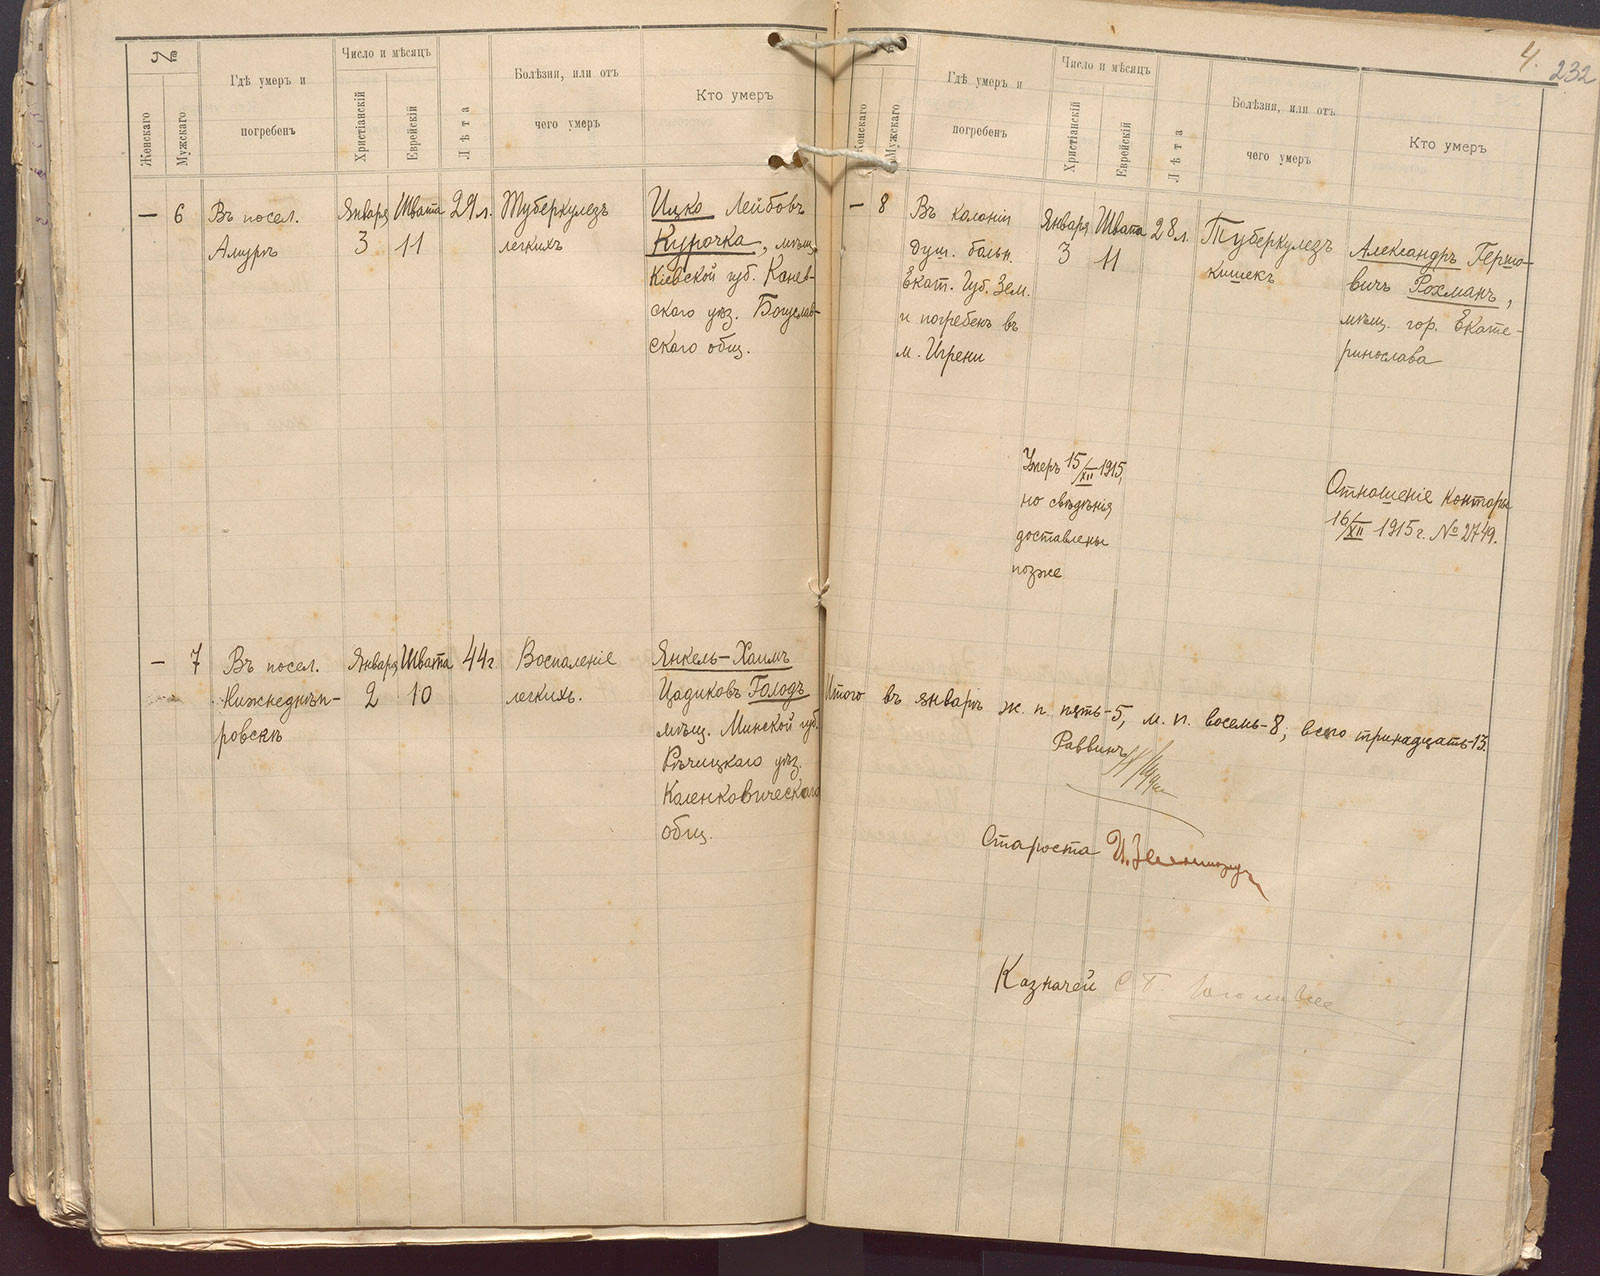 №
Женскаго
Мужскаго
Гдѣ умеръ и
погребенъ
Число и мѣсяцъ
Христіанскій
Еврейскій
Лѣта
Болѣзни, или отъ
чего умеръ
Кто умеръ
— 6
Въ посел.
Амурѣ
Января
3
Швата
11
29 л.
Туберкулезъ
легкихъ
Ицко Лейбовъ
Курочка, мѣщ.
Кіевской губ. Канев-
скаго уѣз. Богуслав-
скаго общ.
— 7
Въ посел.
Нижнеднѣп-
ровскѣ
Января
2
Швата
10
44 г.
Воспаленіе
легкихъ.
Янкель-Хаимъ
Цадиковъ Голодъ
мѣщ. Минской губ.
Рѣчицкаго уѣз.
Каленковическаго
общ.
4.
232
Женскаго
Мужскаго
Гдѣ умеръ и
погребенъ
Число и мѣсяцъ
Христіанскій
Еврейскій
Лѣта
Болѣзни, или отъ
чего умеръ
Кто умеръ
— 8
Въ колоніи
душ. больн.
Екат. Губ. Зем.
и погребенъ въ
м. Игрени
Января
3
Швата
11
28 л.
Туберкулезъ
кишекъ
Александръ Гершо-
вичъ Рохманъ,
мѣщ. гор. Екате-
ринослава
Умеръ 15/XII 1915,
но свѣдѣнія
доставлены
позже
Отношеніе конторы
16/XII 1915 г. № 2749.
Итого въ январѣ ж. п. пять-5, м. п. восемь-8; всего тринадцать-13.
Раввинъ
Староста
Казначей